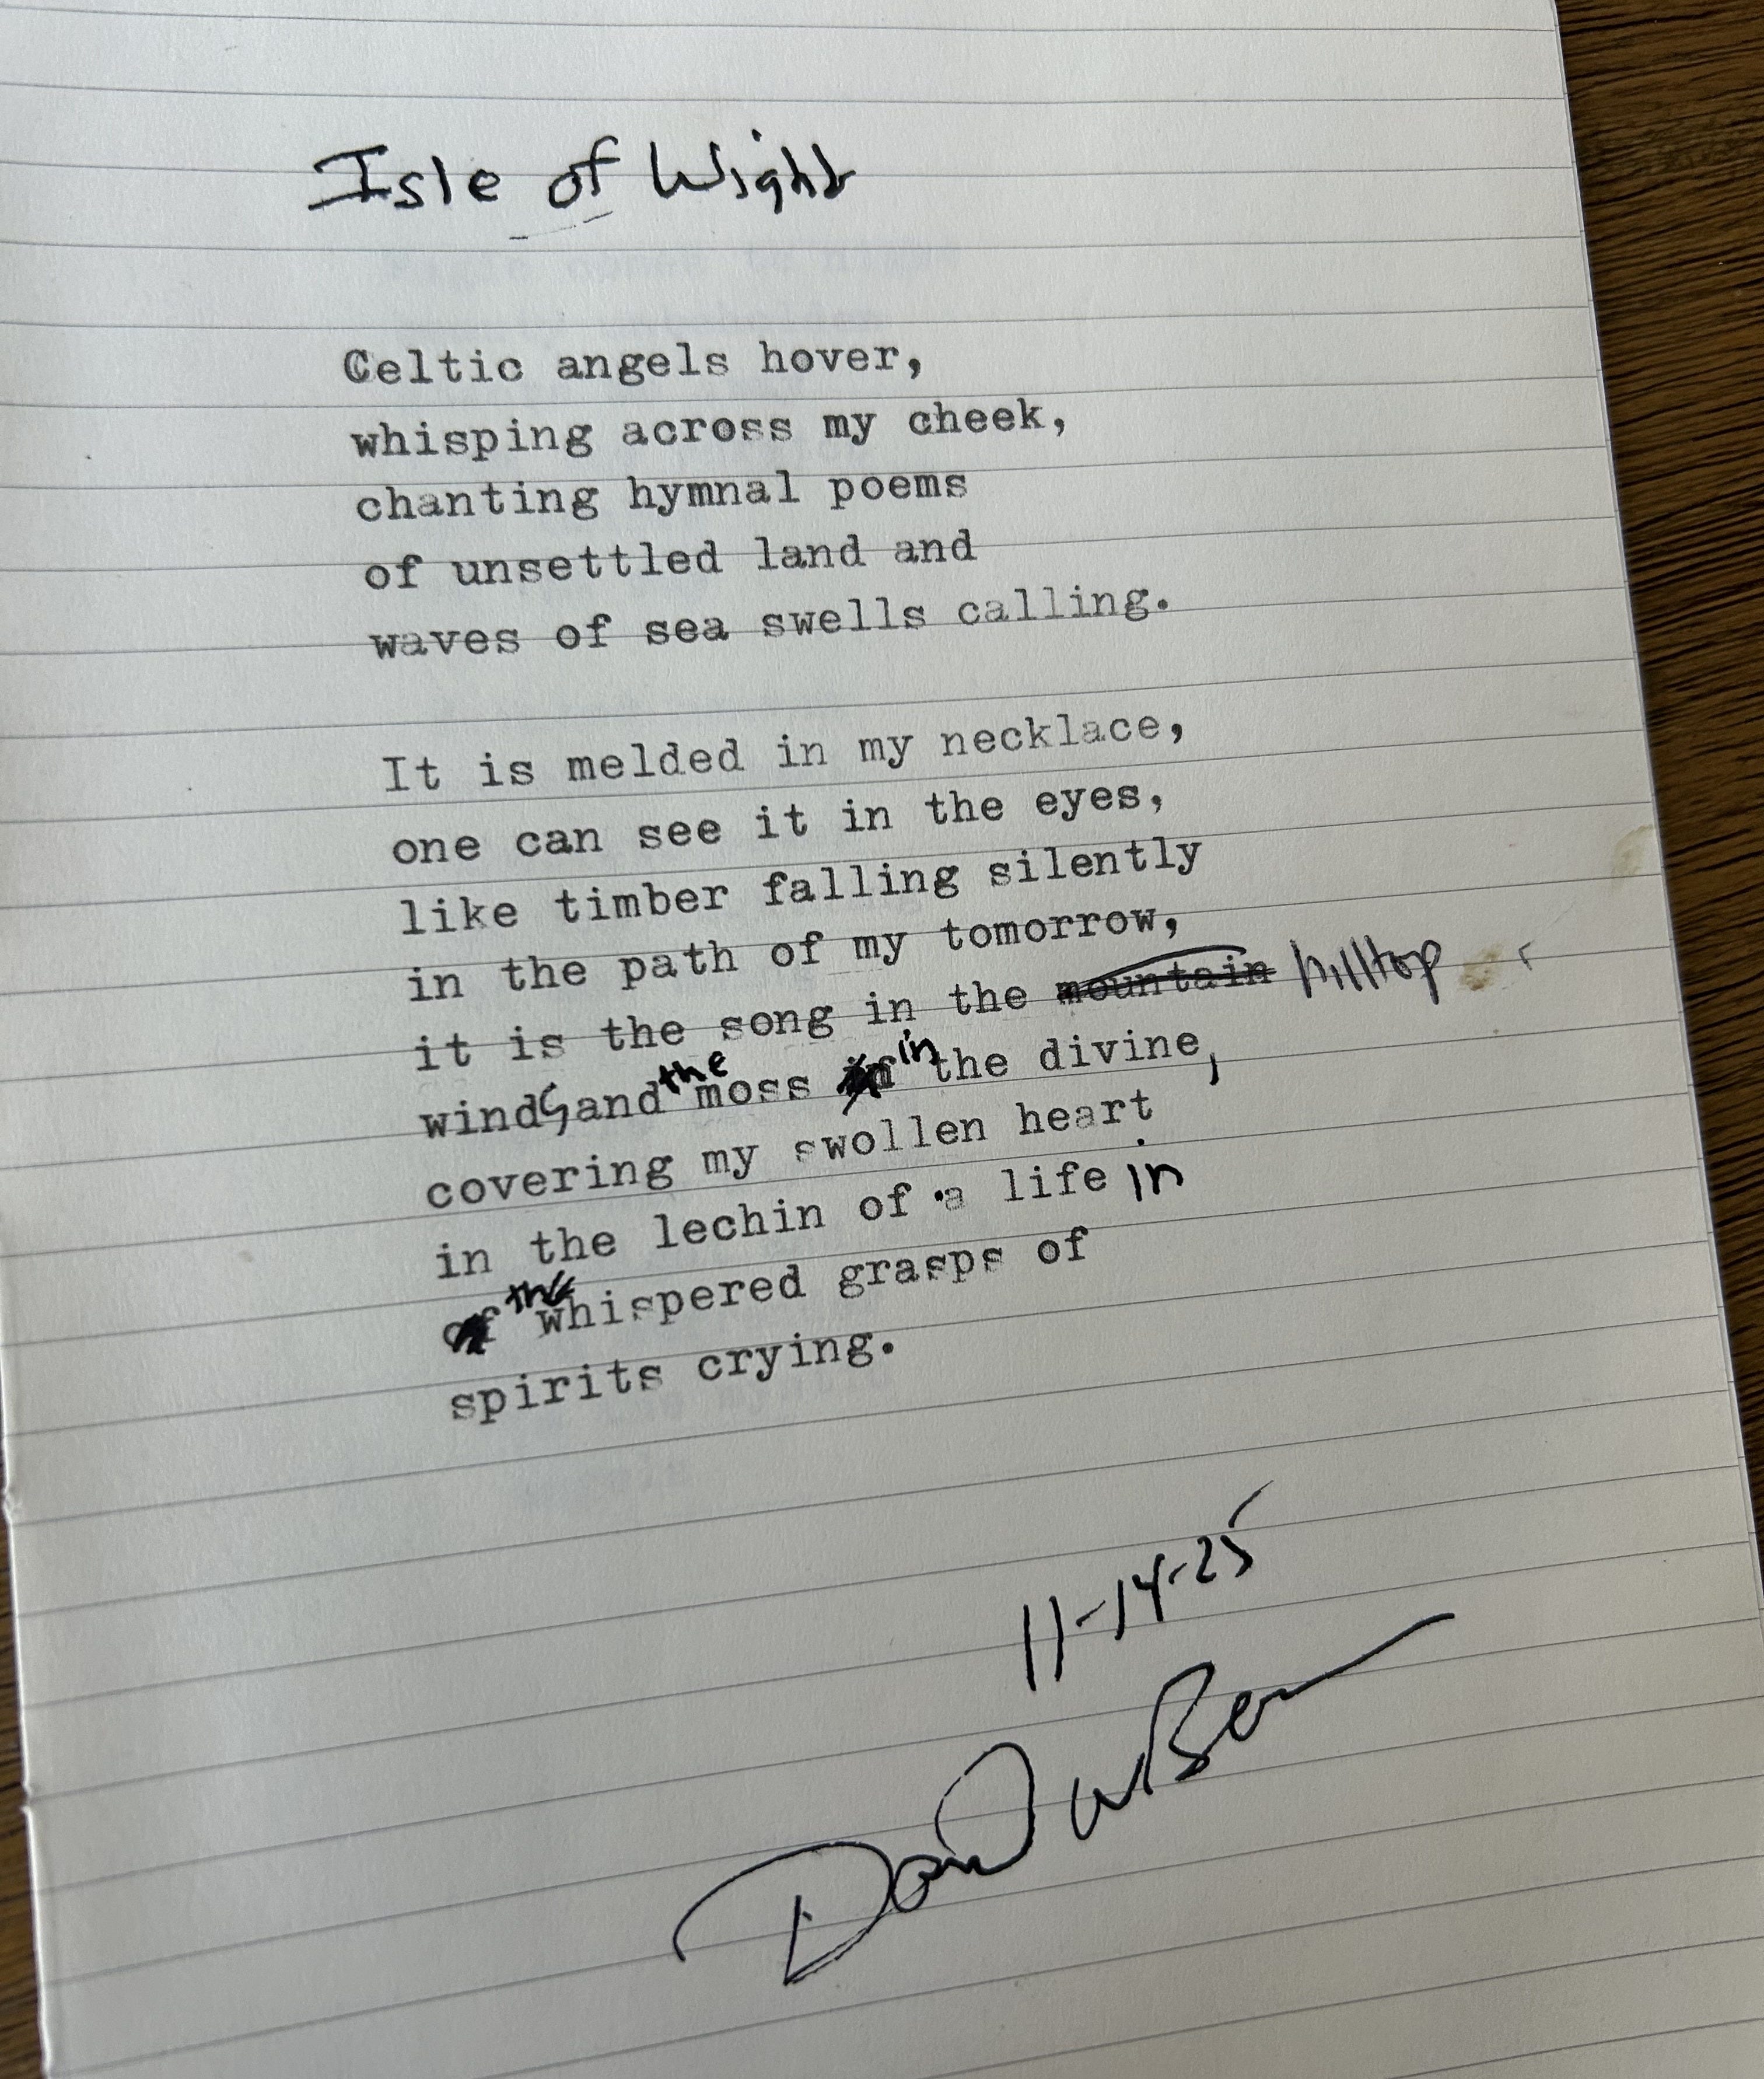 Isle of Wight
Celtic angels hover,
whisping across my cheek,
chanting hymnal poems
of unsettled land and
waves of sea swells calling.
It is melded in my necklace,
one can see it in the eyes,
like timber falling silently
in the path of my tomorrow,
it is the song in the mountain hilltop
winds and the moss in the divine,
covering my swollen heart
in the lechin of a life in
of the whispered grasps of
spirits crying.
11-14-25